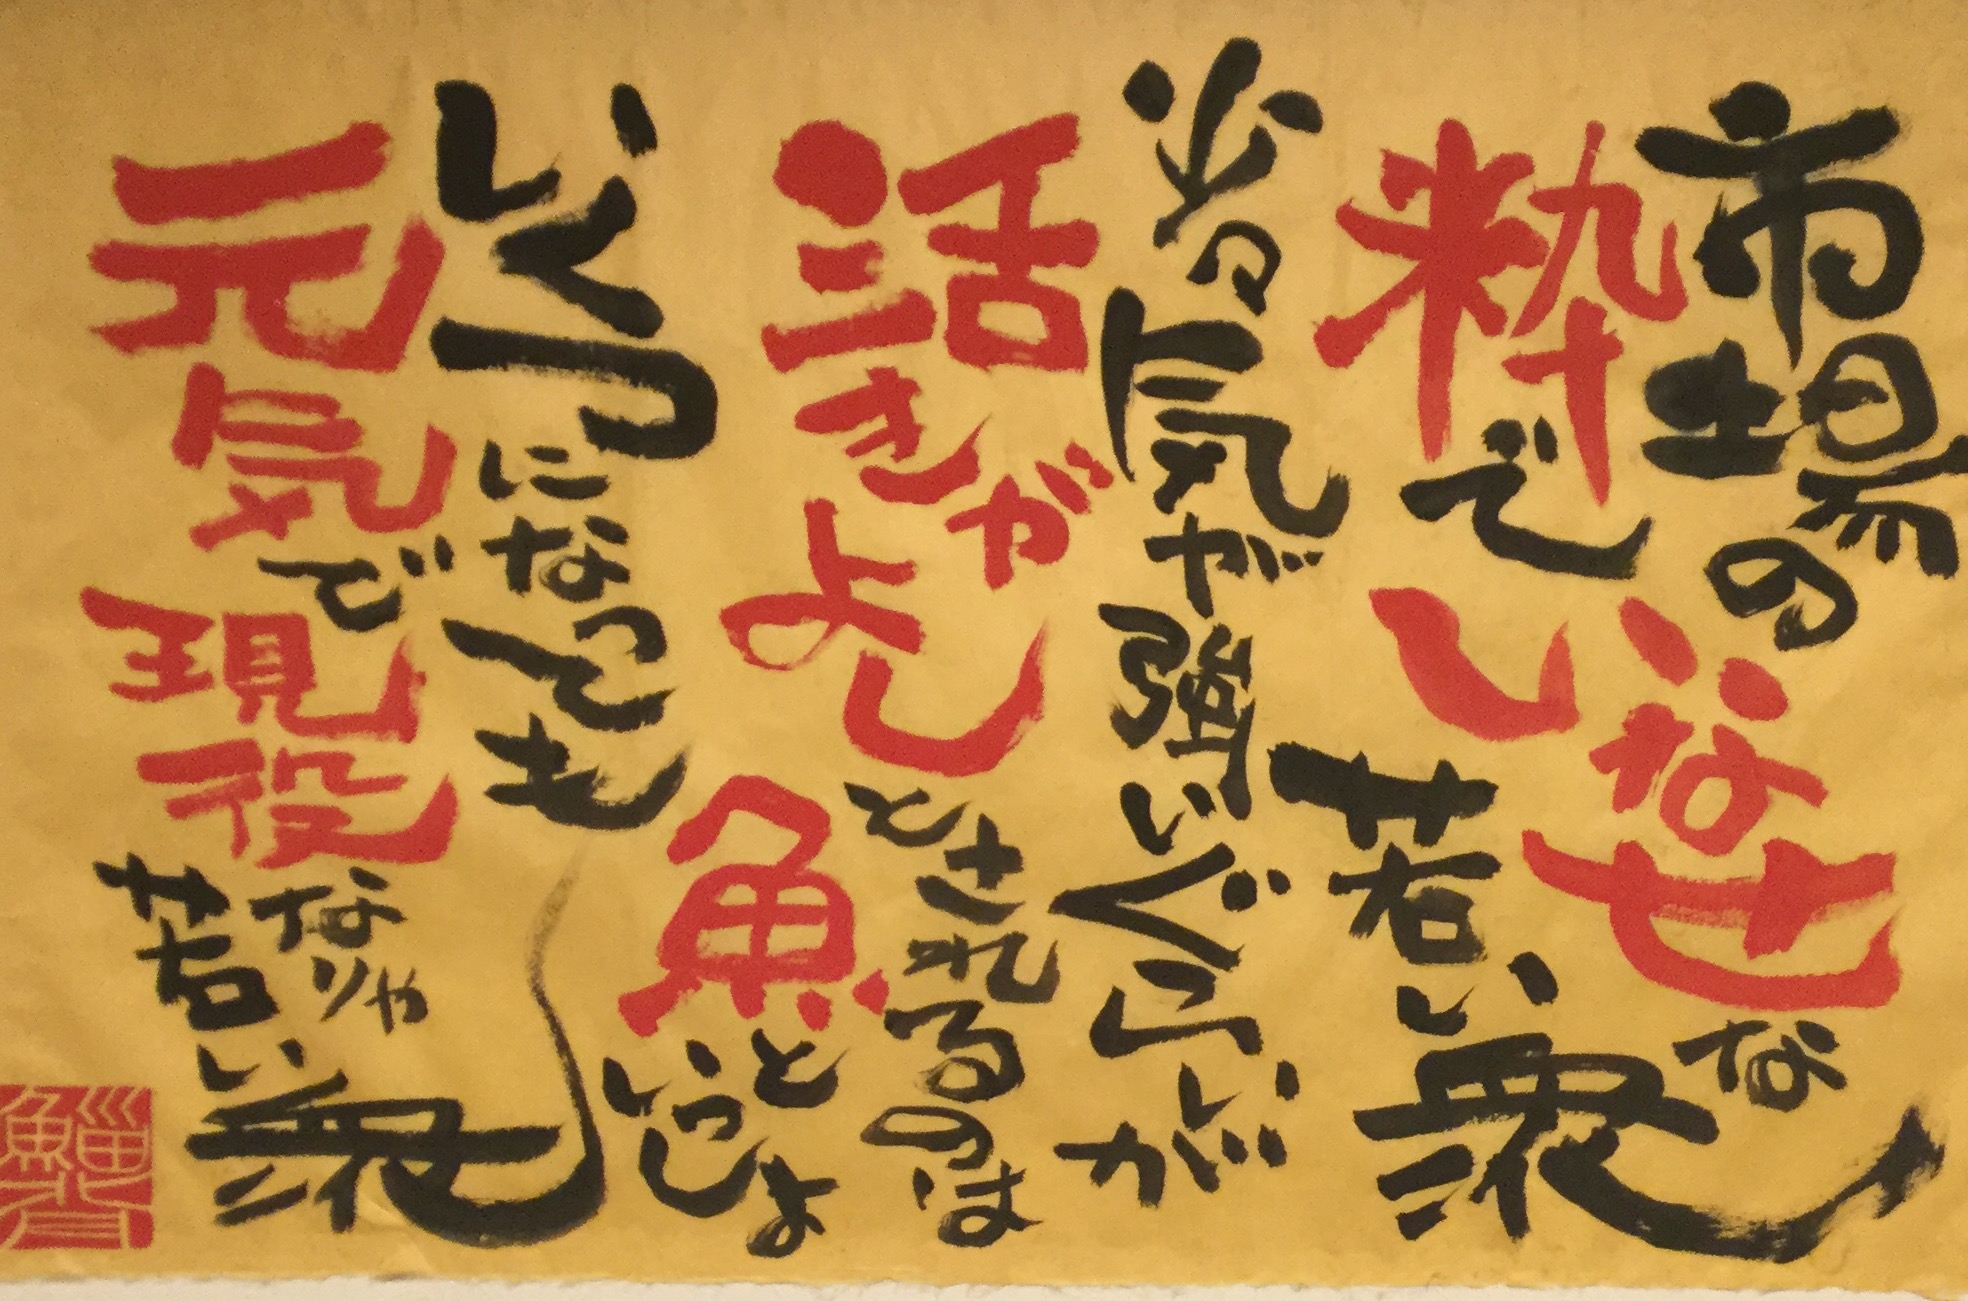 市場の
粋でいなせな
若い衆
少々気が強いぐらいが
活きがよし
とされるのは
魚といっしょ
いくつになっても
元気で
現役なりゃ
若い衆
鯔背